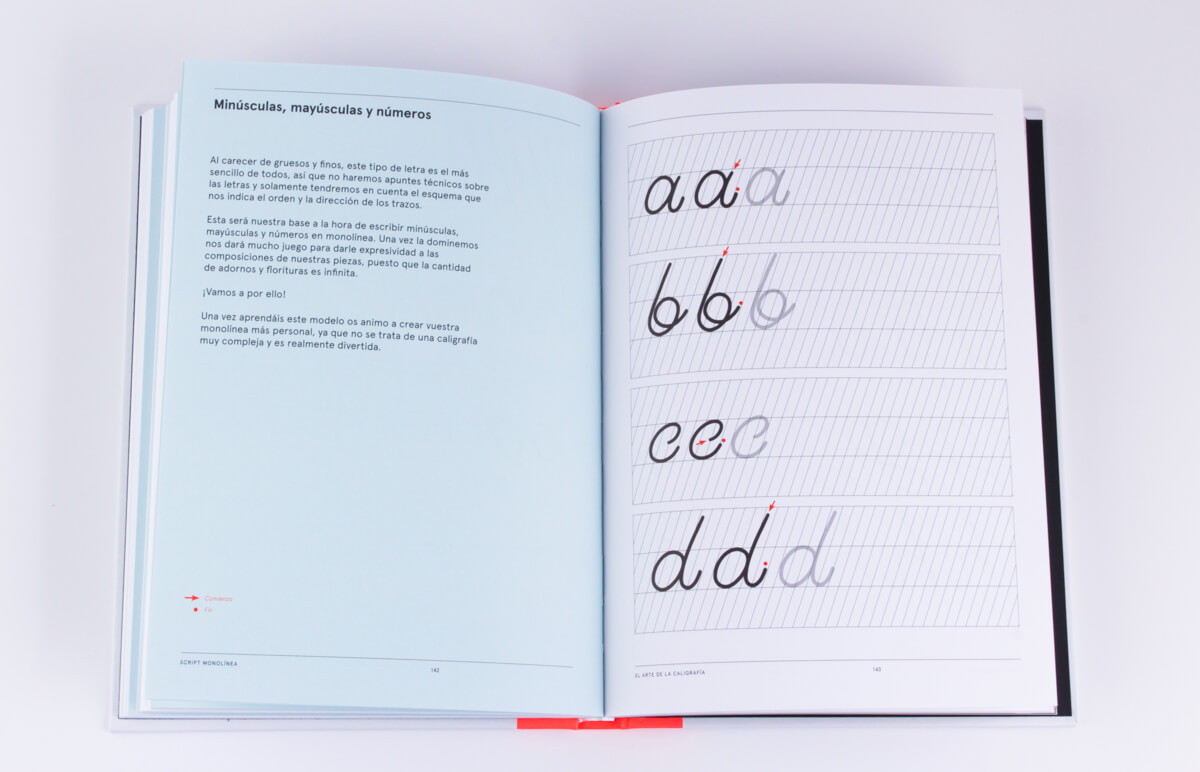 Minúsculas, mayúsculas y números
Al carecer de gruesos y finos, este tipo de letra es el más
sencillo de todos, así que no haremos apuntes técnicos sobre
las letras y solamente tendremos en cuenta el esquema que
nos indica el orden y la dirección de los trazos.
Esta será nuestra base a la hora de escribir minúsculas,
mayúsculas y números en monolínea. Una vez la dominemos
nos dará mucho juego para darle expresividad a las
composiciones de nuestras piezas, puesto que la cantidad
de adornos y florituras es infinita.
¡Vamos a por ello!
Una vez aprendáis este modelo os animo a crear vuestra
monolínea más personal, ya que no se trata de una caligrafía
muy compleja y es realmente divertida.
Comienzo
Fin
SCRIPT MONOLÍNEA
142
a a a
b b b
c c c
d d d
EL ARTE DE LA CALIGRAFÍA
143